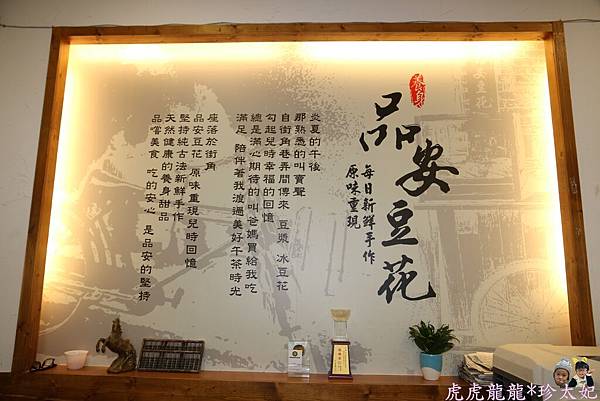 養身
品安豆花
每日新鮮手作
原味重現
炎夏的午後
那熟悉的叫賣聲
自街角巷弄間傳來 豆漿 冰豆花
勾起兒時幸福的回憶
總是滿心期待的叫爸媽買給我吃
滿足 陪伴著我渡過美好午茶時光
座落於街角
品安豆花 原味重現兒時回憶
堅持純古法新鮮手作
天然健康的養身甜品
品嚐美食 吃的安心 是品安的堅持
安豆花
虎虎龍龍*珍太妃